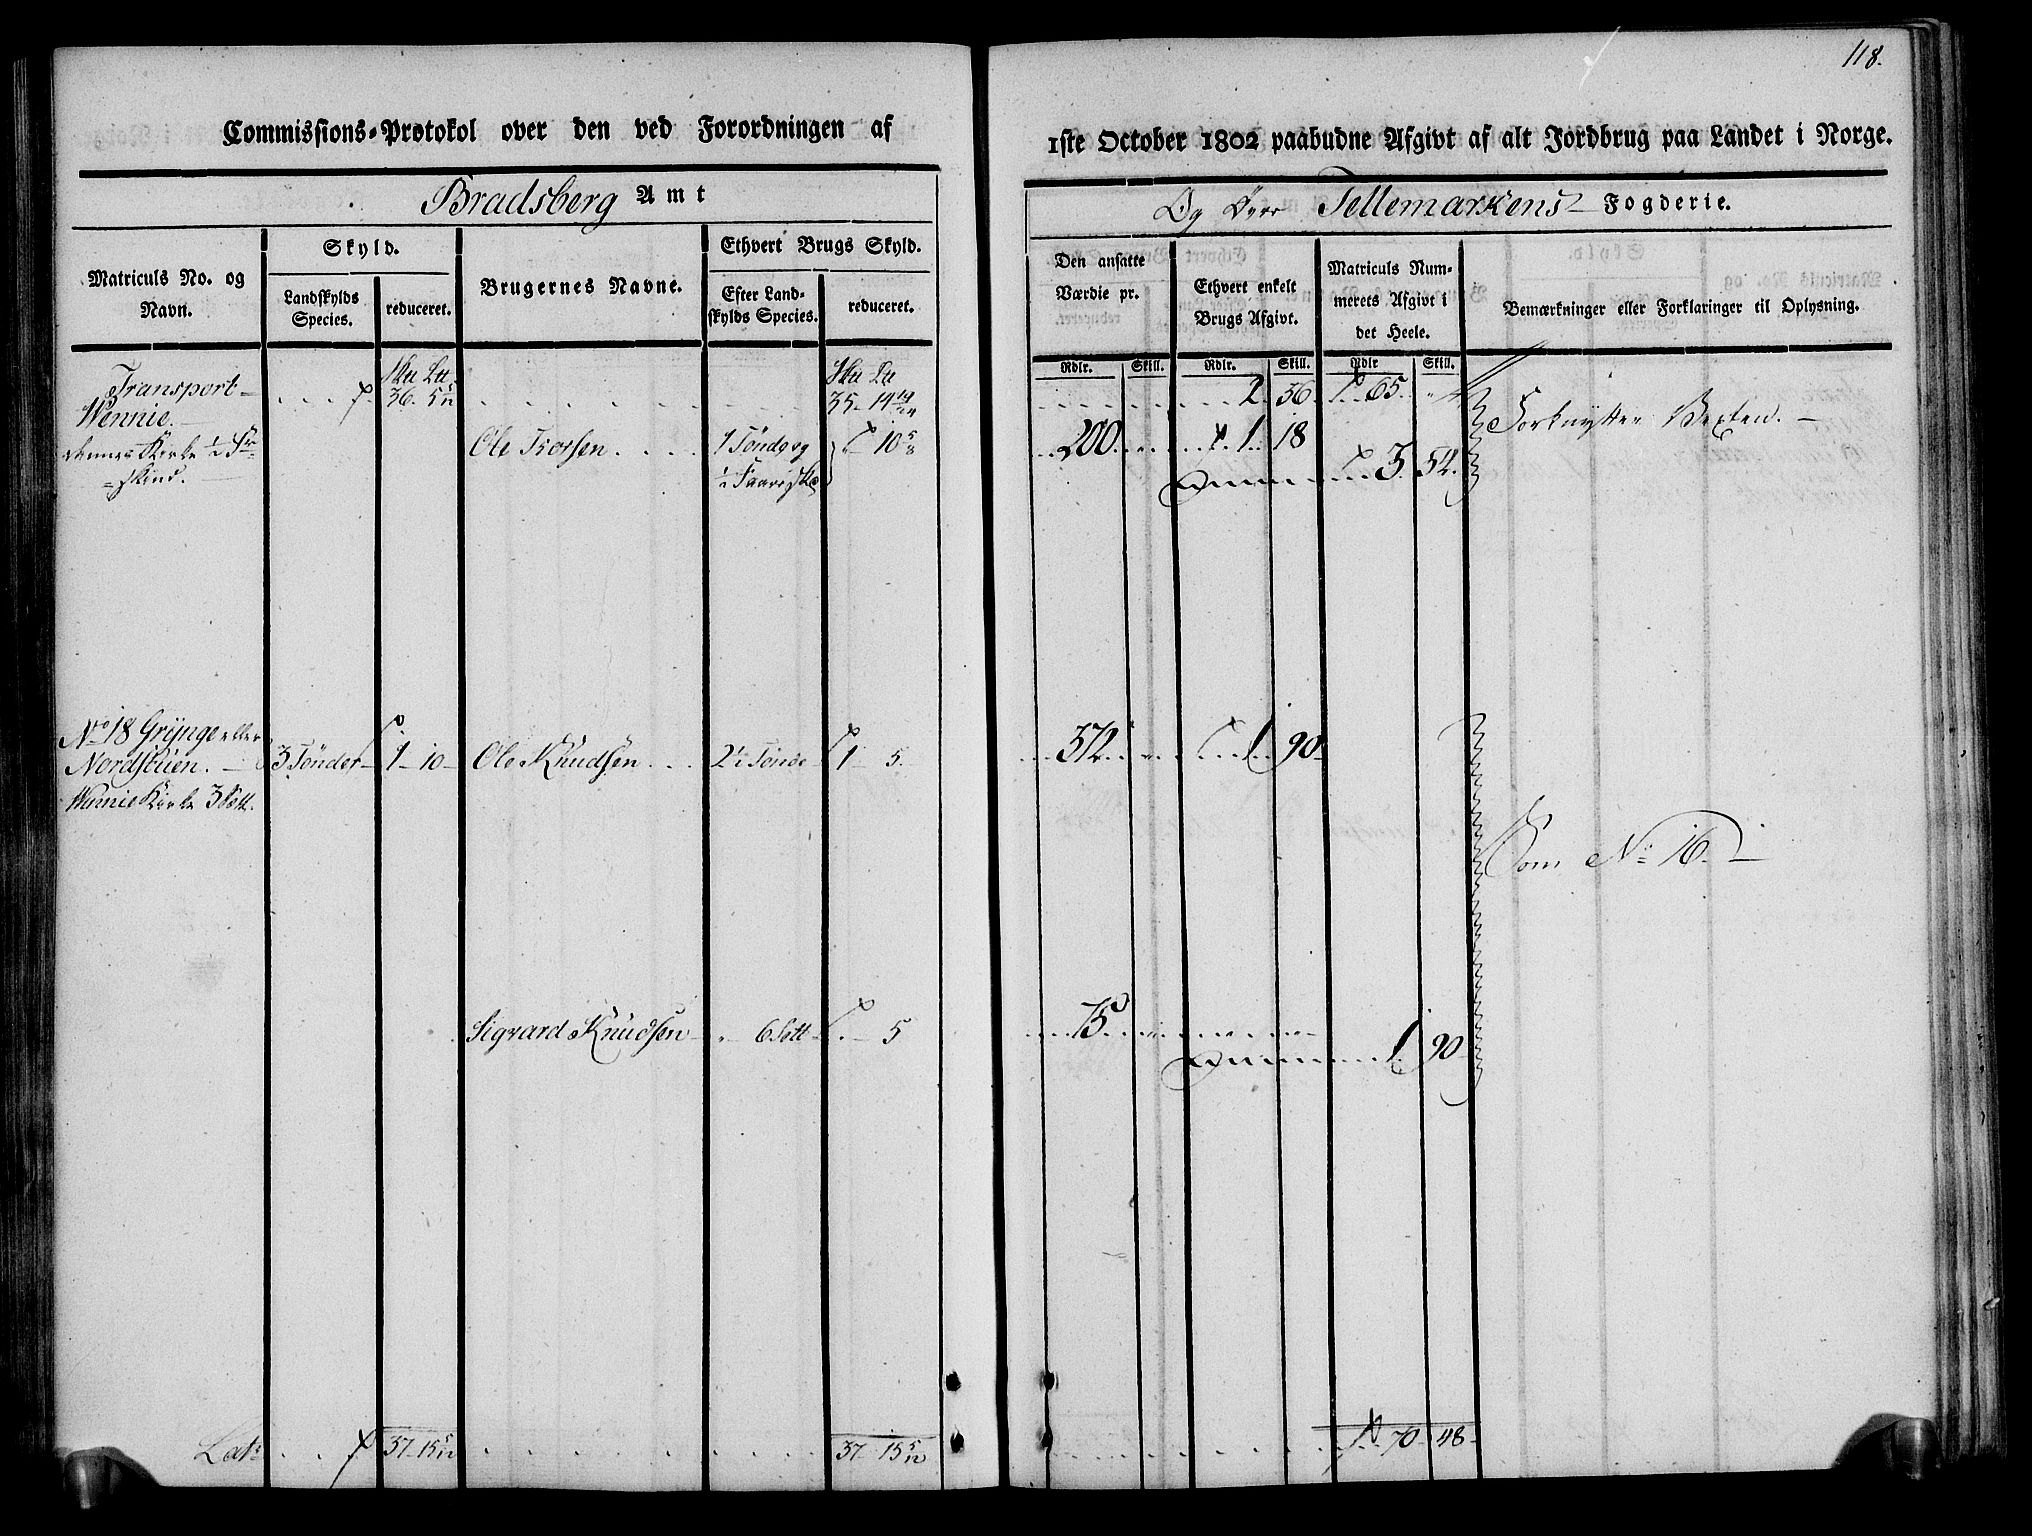 118.
Commissions-Protokol over den ved Forordningen af
1ste October 1802 paabudne Afgivt af alt Jordbrug paa Landet i Norge.
Bradsberg Amt
Og Tellemarkens Fogderie.
Matriculs No. og Navn.
Skyld.
Landskylds Species.
reduceret.
Brugernes Navne.
Ethvert Brugs Skyld.
Efter Landskylds Species.
reduceret.
Den ansatte Værdie pr.
Rdlr. Skill.
Ethvert enkelt Brugs Afgivt.
Rdlr. Skill.
Matriculs Nummerets Afgivt i det Heele.
Rdlr Skill.
Bemærkninger eller Forklaringer til Oplysning.
Transport 36. 5 5/12 35 - 14 19/24 2. 36 65.
Wennie.
Kirke
skind.
Ole Torsen 1 Tønde og 10 5/8 200 1. 18 Forknytter Bexlen.
3. 54.
No 18 Grÿnge eller
Nordstuen. 3 Tønder 1 - 10 Ole Knudsen 2 1/2 Tønde 1 5. 372 1. 90
Winnie Kirke 3 Sett.
Som No 16.
Sigvard Knudsen 6 Sett 5 75
1. 90
Lats 37 - 15 5/12 37 - 15 5/12 70 48